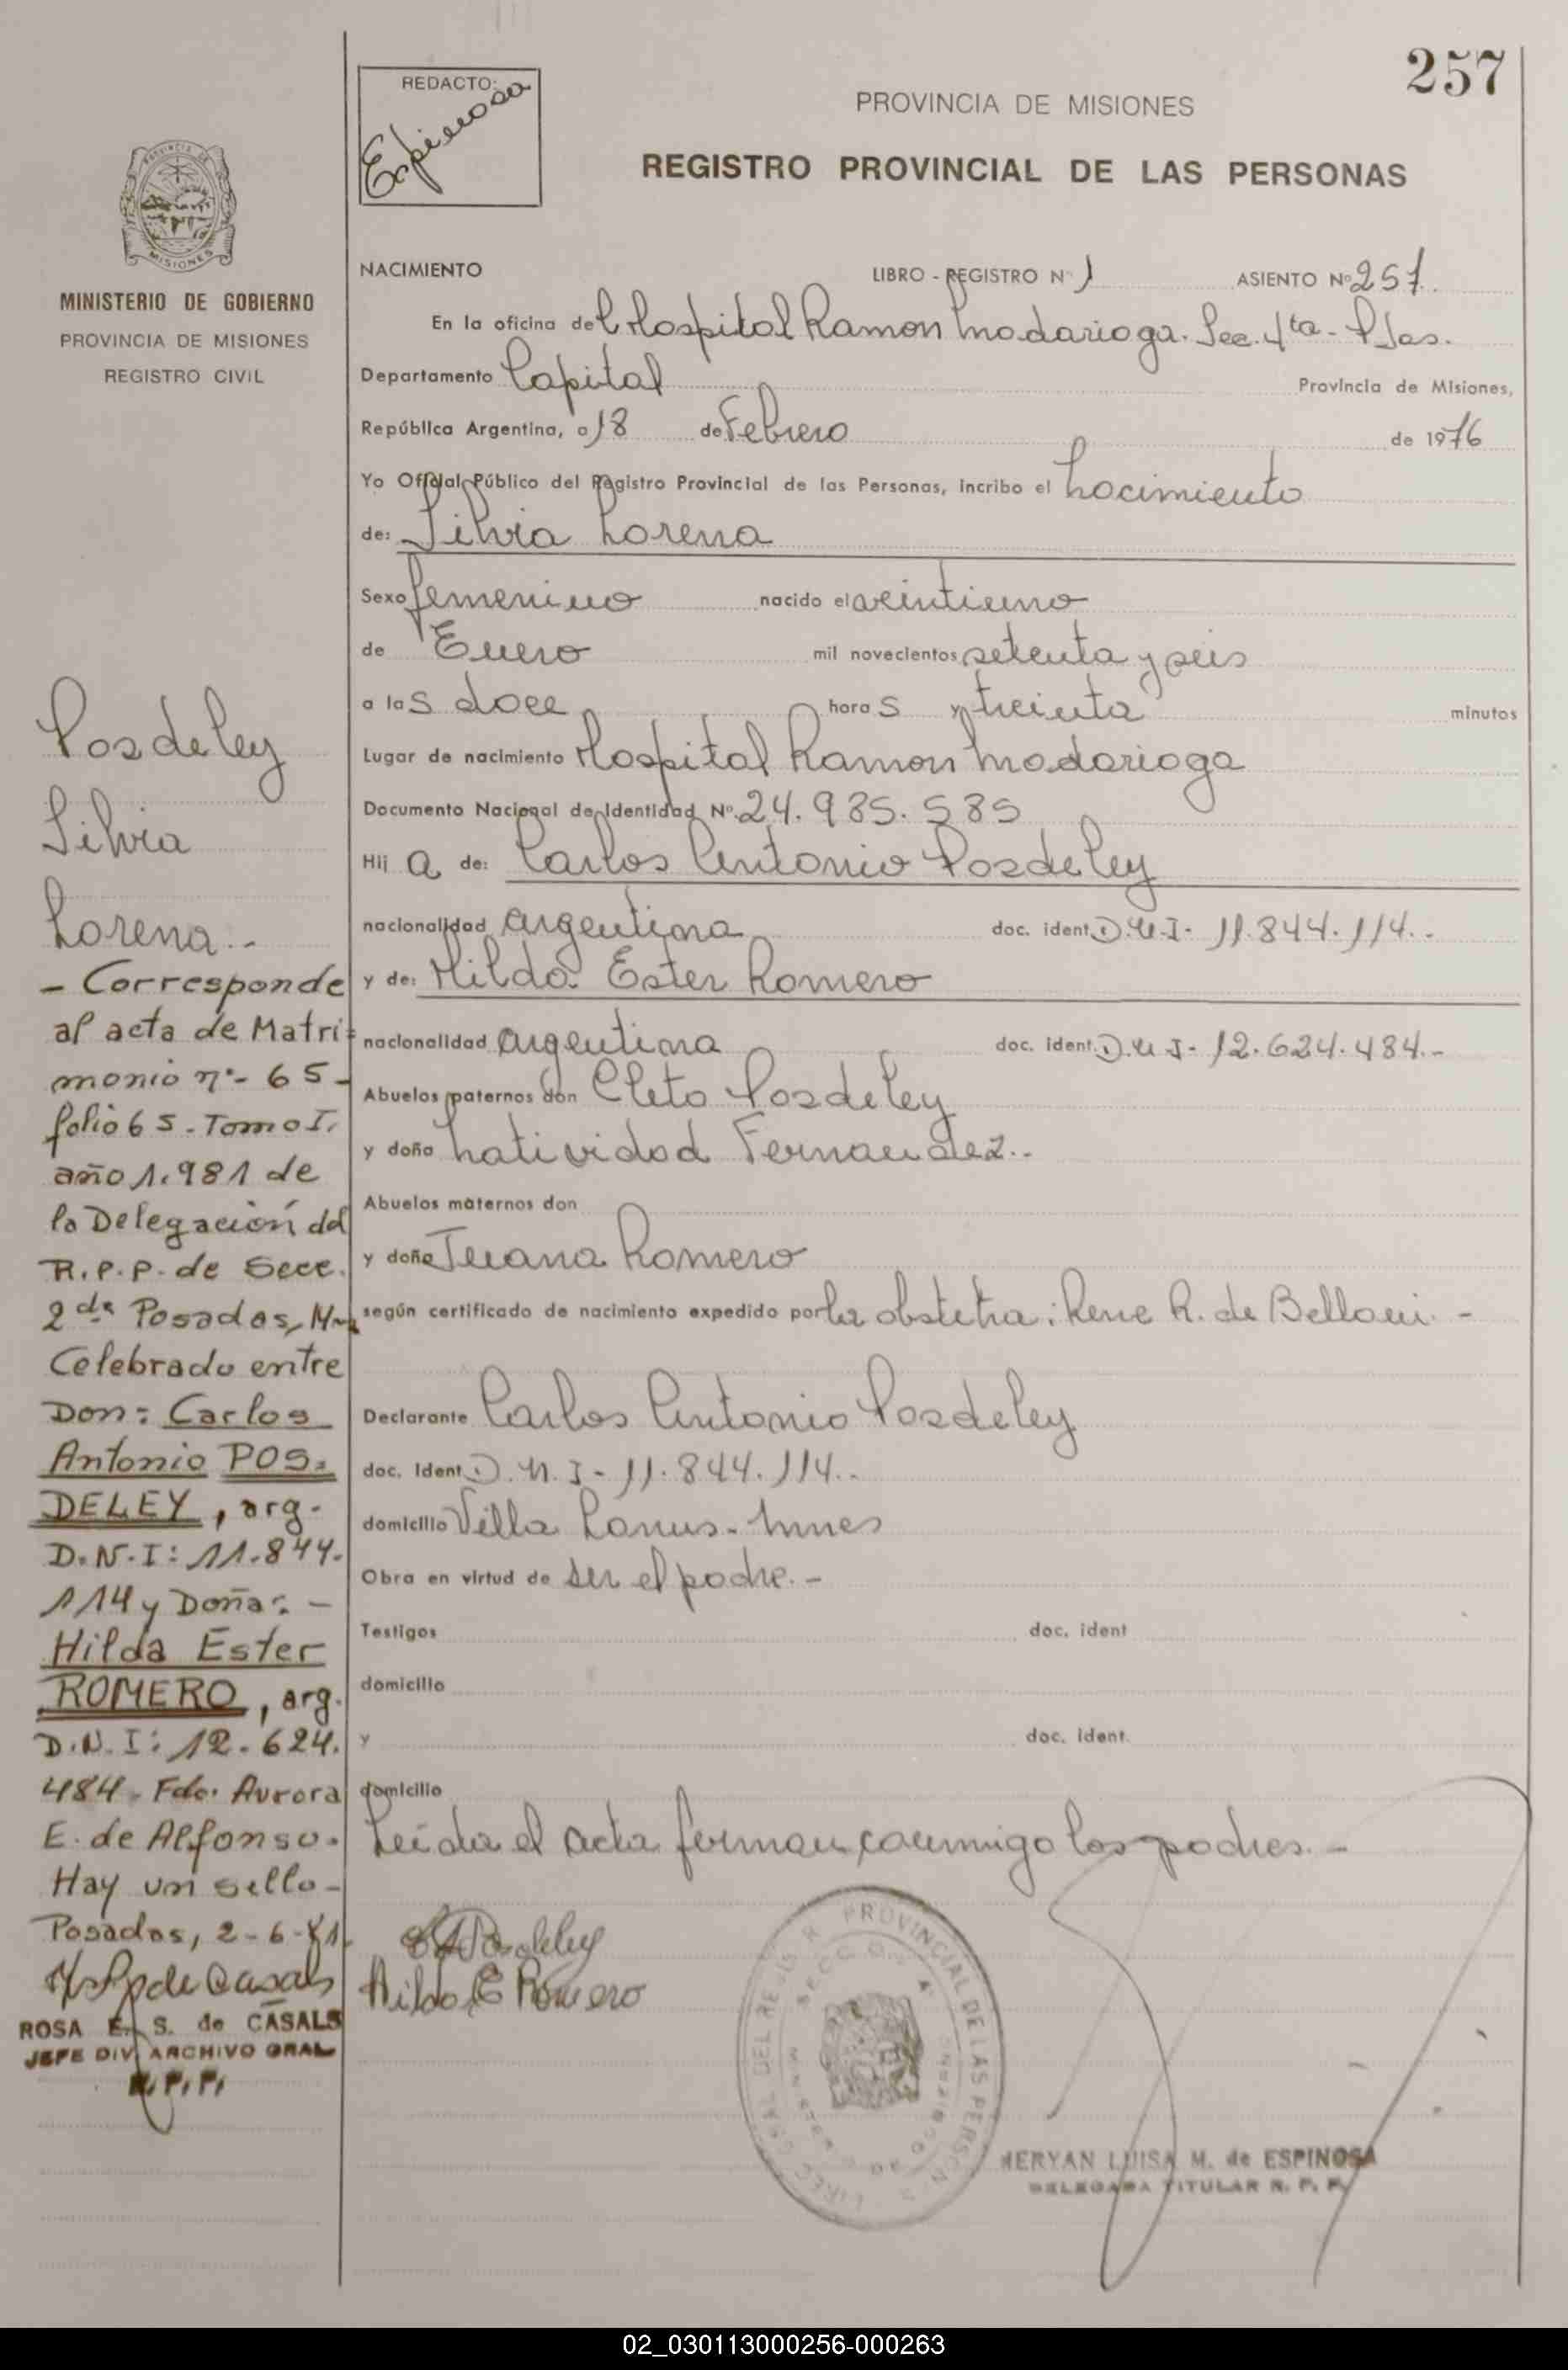 257
REDACTO:
Espinosa
PROVINCIA DE MISIONES
REGISTRO PROVINCIAL DE LAS PERSONAS
PROVINCIA DE
MISIONES
MINISTERIO DE GOBIERNO
PROVINCIA DE MISIONES
REGISTRO CIVIL
NACIMIENTO LIBRO - REGISTRO Nº 1 ASIENTO Nº 257.
En la oficina del Hospital Ramon Madariaga. Sec. 4ta - Pdas.
Departamento Capital Provincia de Misiones,
República Argentina, a 18 de Febrero de 1976
Yo Oficial Público del Registro Provincial de las Personas, incribo el Nacimiento
de: Silvia Lorena
Sexo femenino nacido el veintiuno
de Enero mil novecientos setenta y seis
a las doce horas y treinta minutos
Lugar de nacimiento Hospital Ramon Madariaga
Documento Nacional de Identidad Nº 24.985.585
Hij a de: Carlos Antonio Posdeley
nacionalidad argentina doc. ident. D.N.I- 11.844.114.-
y de: Hilda Ester Romero
nacionalidad argentina doc. ident. D.N.I- 12.624.484.-
Abuelos paternos don Cleto Posdeley
y doña Natividad Fernandez.-
Abuelos maternos don
y doña Juana Romero
según certificado de nacimiento expedido por la obstetra: Rene R. de Belloni. -
Declarante Carlos Antonio Posdeley
doc. Ident D.N.I- 11.844.114.-
domicilio Villa Lanus- Mnes
Obra en virtud de ser el padre.-
Testigos doc. ident
domicilio
y doc. ident.
domicilio
Leida el acta firman conmigo los padres.-
Posdeley
Hilda E Romero
PROVINCIAL DE LAS PERSONAS
MERYAN LUISA M. de ESPINOSA
DELEGADA TITULAR R. P. P.
Posdeley
Silvia
Lorena.-
- Corresponde
al acta de Matri-
monio nº- 65-
folio 65 - Tomo I,
año 1.981 de
la Delegación del
R.P.P. de Secc.
2da Posadas, Mns
Celebrado entre
Don: Carlos
Antonio POS-
DELEY, arg.
D.N.I: 11.844.
114 y Doña: -
Hilda Ester
ROMERO, arg.
D.N.I: 12.624.
484. Fdo. Aurora
E. de Alfonso.
Hay un sello-
Posadas, 2-6-81.
de Casals
ROSA E. S. de CASALS
JEFE DIV. ARCHIVO GRAL
R.P.P.
02_030113000256-000263